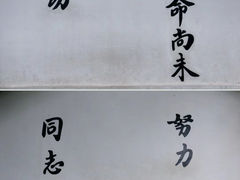 命尚未
努力
同志